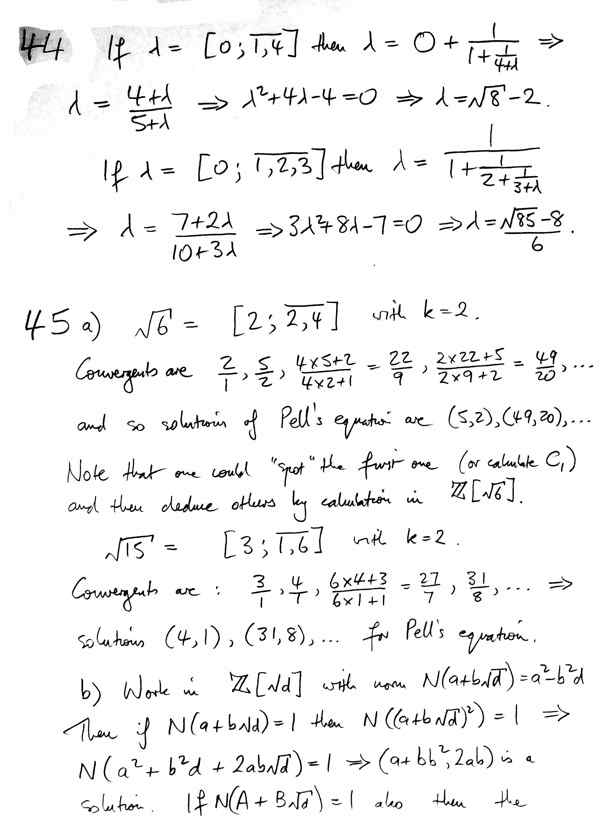 44 If λ = [0; \overline{1,4}] then λ = 0 + \frac{1}{1+\frac{1}{4+λ}} ⇒
λ = \frac{4+λ}{5+λ} ⇒ λ²+4λ-4=0 ⇒ λ=√8-2.
If λ = [0; \overline{1,2,3}] then λ = \frac{1}{1+\frac{1}{2+\frac{1}{3+λ}}}
⇒ λ = \frac{7+2λ}{10+3λ} ⇒ 3λ²+8λ-7=0 ⇒ λ=\frac{√85-8}{6}.
45 a) √6 = [2; \overline{2,4}] with k=2.
Convergents are \frac{2}{1}, \frac{5}{2}, \frac{4×5+2}{4×2+1} = \frac{22}{9}, \frac{2×22+5}{2×9+2} = \frac{49}{20}, ...
and so solutions of Pell's equation are (5,2), (49,20), ...
Note that one could "spot" the first one (or calculate C₁)
and then deduce others by calculation in ℤ[√6].
√15 = [3; \overline{1,6}] with k=2.
Convergents are : \frac{3}{1}, \frac{4}{1}, \frac{6×4+3}{6×1+1} = \frac{27}{7}, \frac{31}{8}, ... ⇒
solutions (4,1), (31,8), ... for Pell's equation.
b) Work in ℤ[√d] with norm N(a+b√d)=a²-b²d
Then if N(a+b√d)=1 then N((a+b√d)²)=1 ⇒
N(a²+b²d+2ab√d)=1 ⇒ (a+bb², 2ab) is a
solution. If N(A+B√d)=1 also then the